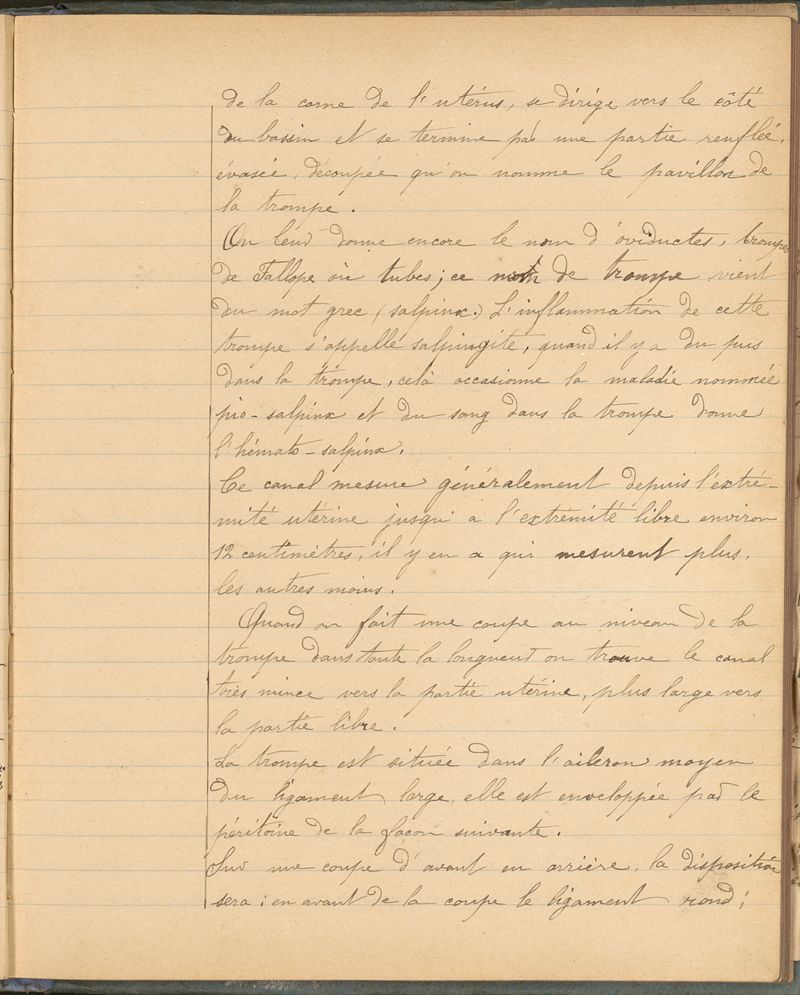 de la corne de l'utérus, se dirige vers le côté
du bassin et se termine par une partie renflée,
évasée, découpée qu'on nomme le pavillon de
la trompe.
On leur donne encore le nom d'oviductes, trompes
de Fallope ou tubes; ce mot de trompe vient
du mot grec (salpinx.) L'inflammation de cette
trompe s'appelle salpingite, quand il y a du pus
dans la trompe, celà occasionne la maladie nommée
pio-salpinx et du sang dans la trompe donne
l'hémato-salpinx.
Ce canal mesure généralement depuis l'extré-
mité utérine jusqu'a l'extrémité libre environ
12 centimètres, il y en a qui mesurent plus,
les autres moins.
Quand on fait une coupe au niveau de la
trompe dans toute la longueur on trouve le canal
très mince vers la partie utérine, plus large vers
la partie libre.
La trompe est située dans l'aileron moyen
du ligament large, elle est enveloppée par le
péritoine de la façon suivante.
Sur une coupe d'avant en arrière, la disposition
sera: en avant de la coupe le ligament rond;